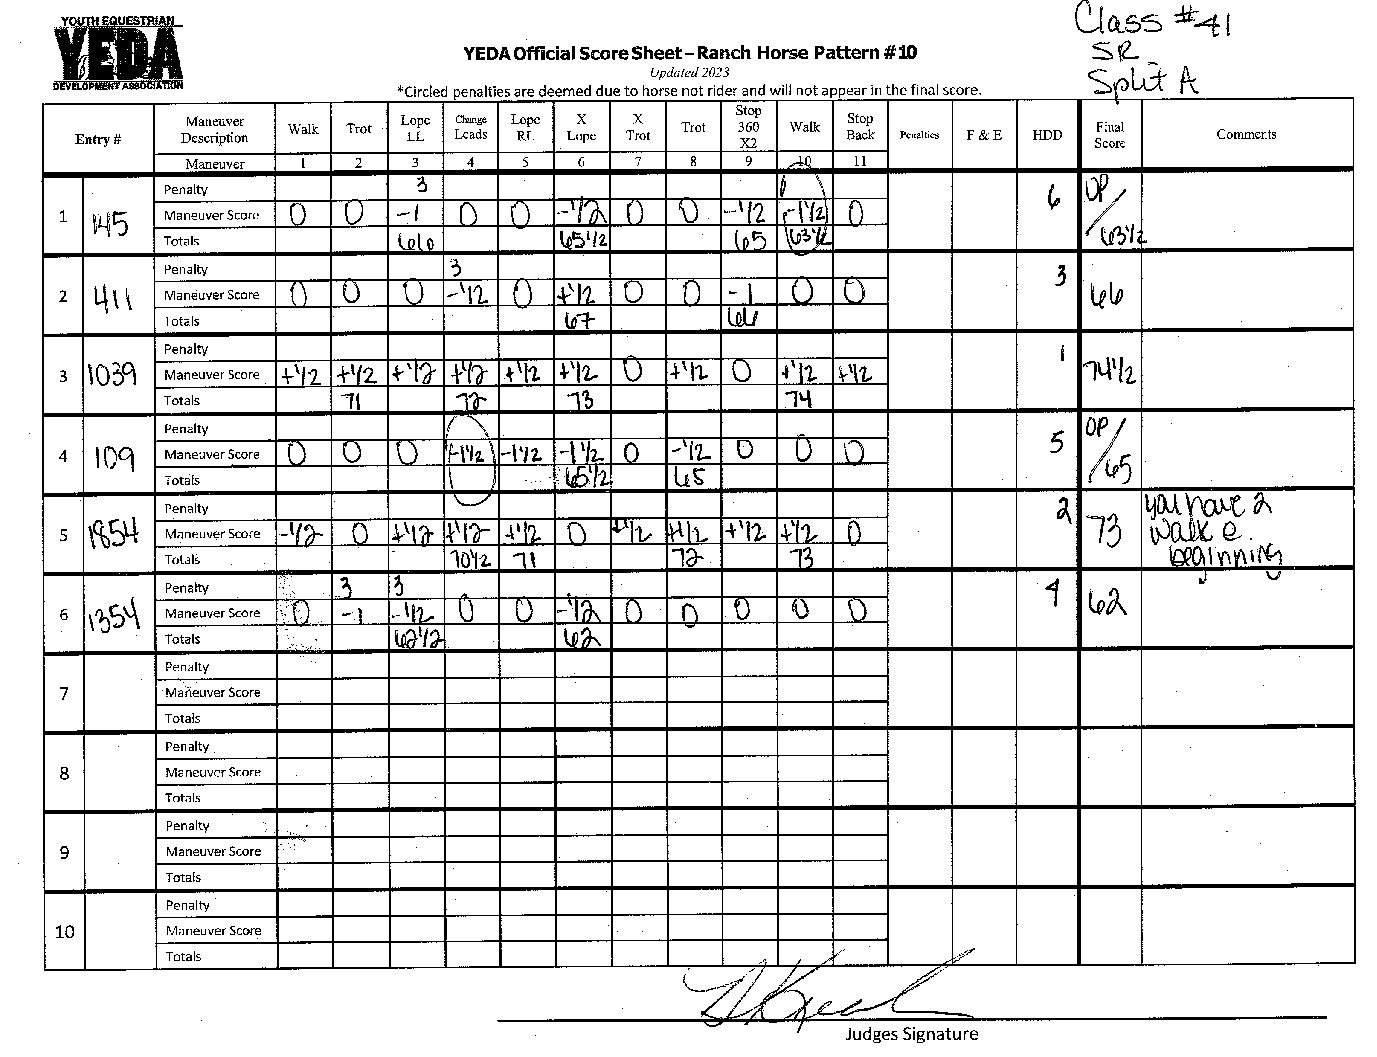 YOUTH EQUESTRIAN
YEDA
DEVELOPMENT ASSOCIATION
Class #41
SR
Split A
YEDA Official Score Sheet – Ranch Horse Pattern #10
Updated 2023
*Circled penalties are deemed due to horse not rider and will not appear in the final score.
Entry # Maneuver Description Walk Trot Lope LL Change Leads Lope RL X Lope X Trot Trot Stop 360 X2 Walk Stop Back Penalties F & E HDD Final Score Comments
Maneuver 1 2 3 4 5 6 7 8 9 10 11
1 145 6 OP/63 1/2
Penalty 3
Maneuver Score 0 0 -1 0 0 -1/2 0 0 -1/2 -1 1/2 0
Totals 66 65 1/2 65 63 1/2
2 411 3 66
Penalty 3
Maneuver Score 0 0 0 -1/2 0 +1/2 0 0 -1 0 0
Totals 67 66
3 1039 1 74 1/2
Penalty
Maneuver Score +1/2 +1/2 +1/2 +1/2 +1/2 +1/2 0 +1/2 0 +1/2 +1/2
Totals 71 72 73 74
4 109 5 OP/65
Penalty
Maneuver Score 0 0 0 -1 1/2 -1 1/2 -1 1/2 0 -1/2 0 0 0
Totals 65 1/2 65
5 1854 2 73 you have 2 walk e. beginning
Penalty
Maneuver Score -1/2 0 +1/2 +1/2 +1/2 0 +1/2 +1/2 +1/2 +1/2 0
Totals 70 1/2 71 72 73
6 1354 4 62
Penalty 3 3
Maneuver Score 0 -1 -1/2 0 0 -1/2 0 0 0 0 0
Totals 62 1/2 62
7
Penalty
Maneuver Score
Totals
8
Penalty
Maneuver Score
Totals
9
Penalty
Maneuver Score
Totals
10
Penalty
Maneuver Score
Totals
Judges Signature